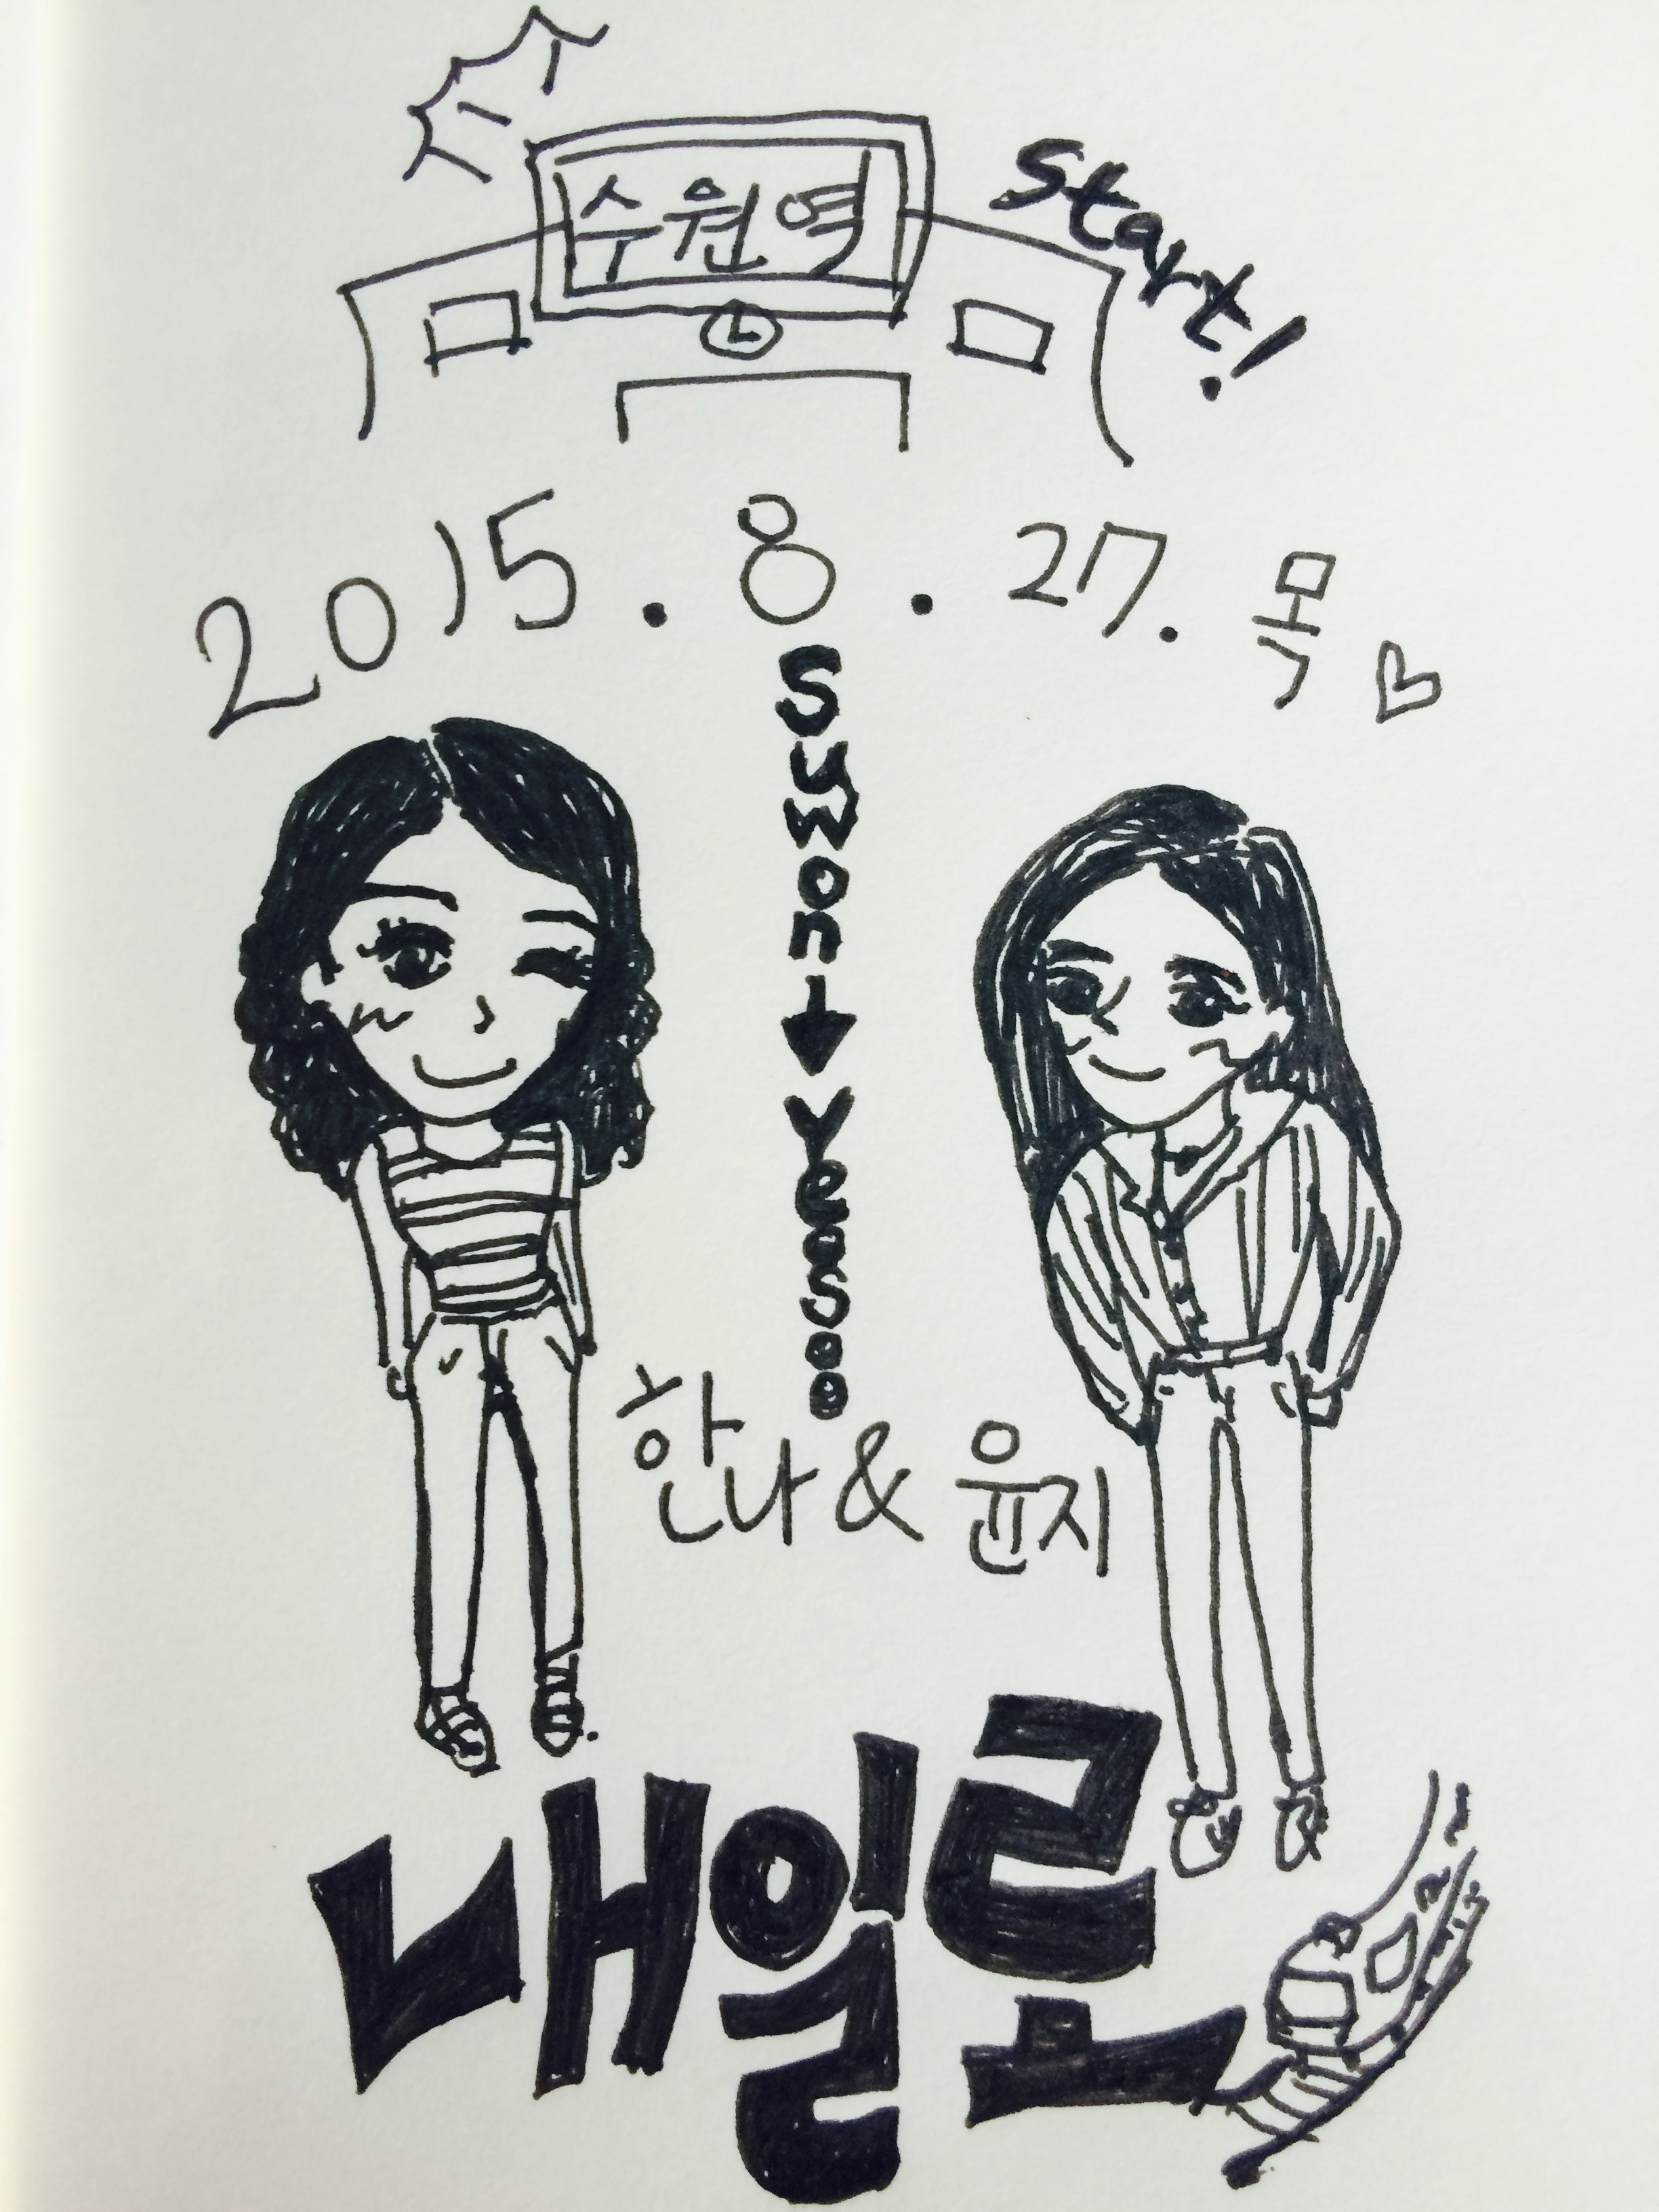 수원역
Start!
2015. 8. 27. 목
Suwon
Yeosoo
한나 & 윤지
내일로